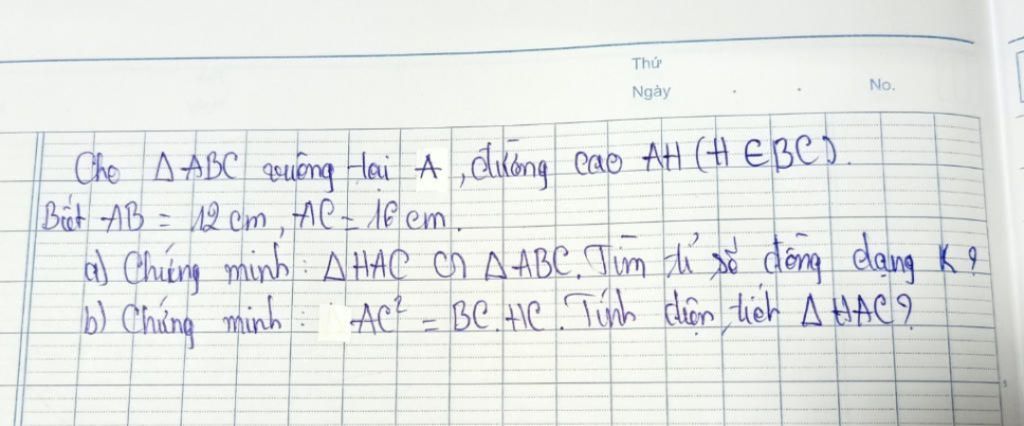 Thứ
Ngày . . No.
Cho ΔABC vuông tại A, đường cao AH (H ∈ BC).
Biết AB = 12 cm, AC = 16 cm.
a) Chứng minh: ΔHAC ∽ ΔABC. Tìm tỉ số đồng dạng K?
b) Chứng minh: AC² = BC.HC. Tính diện tích ΔHAC?